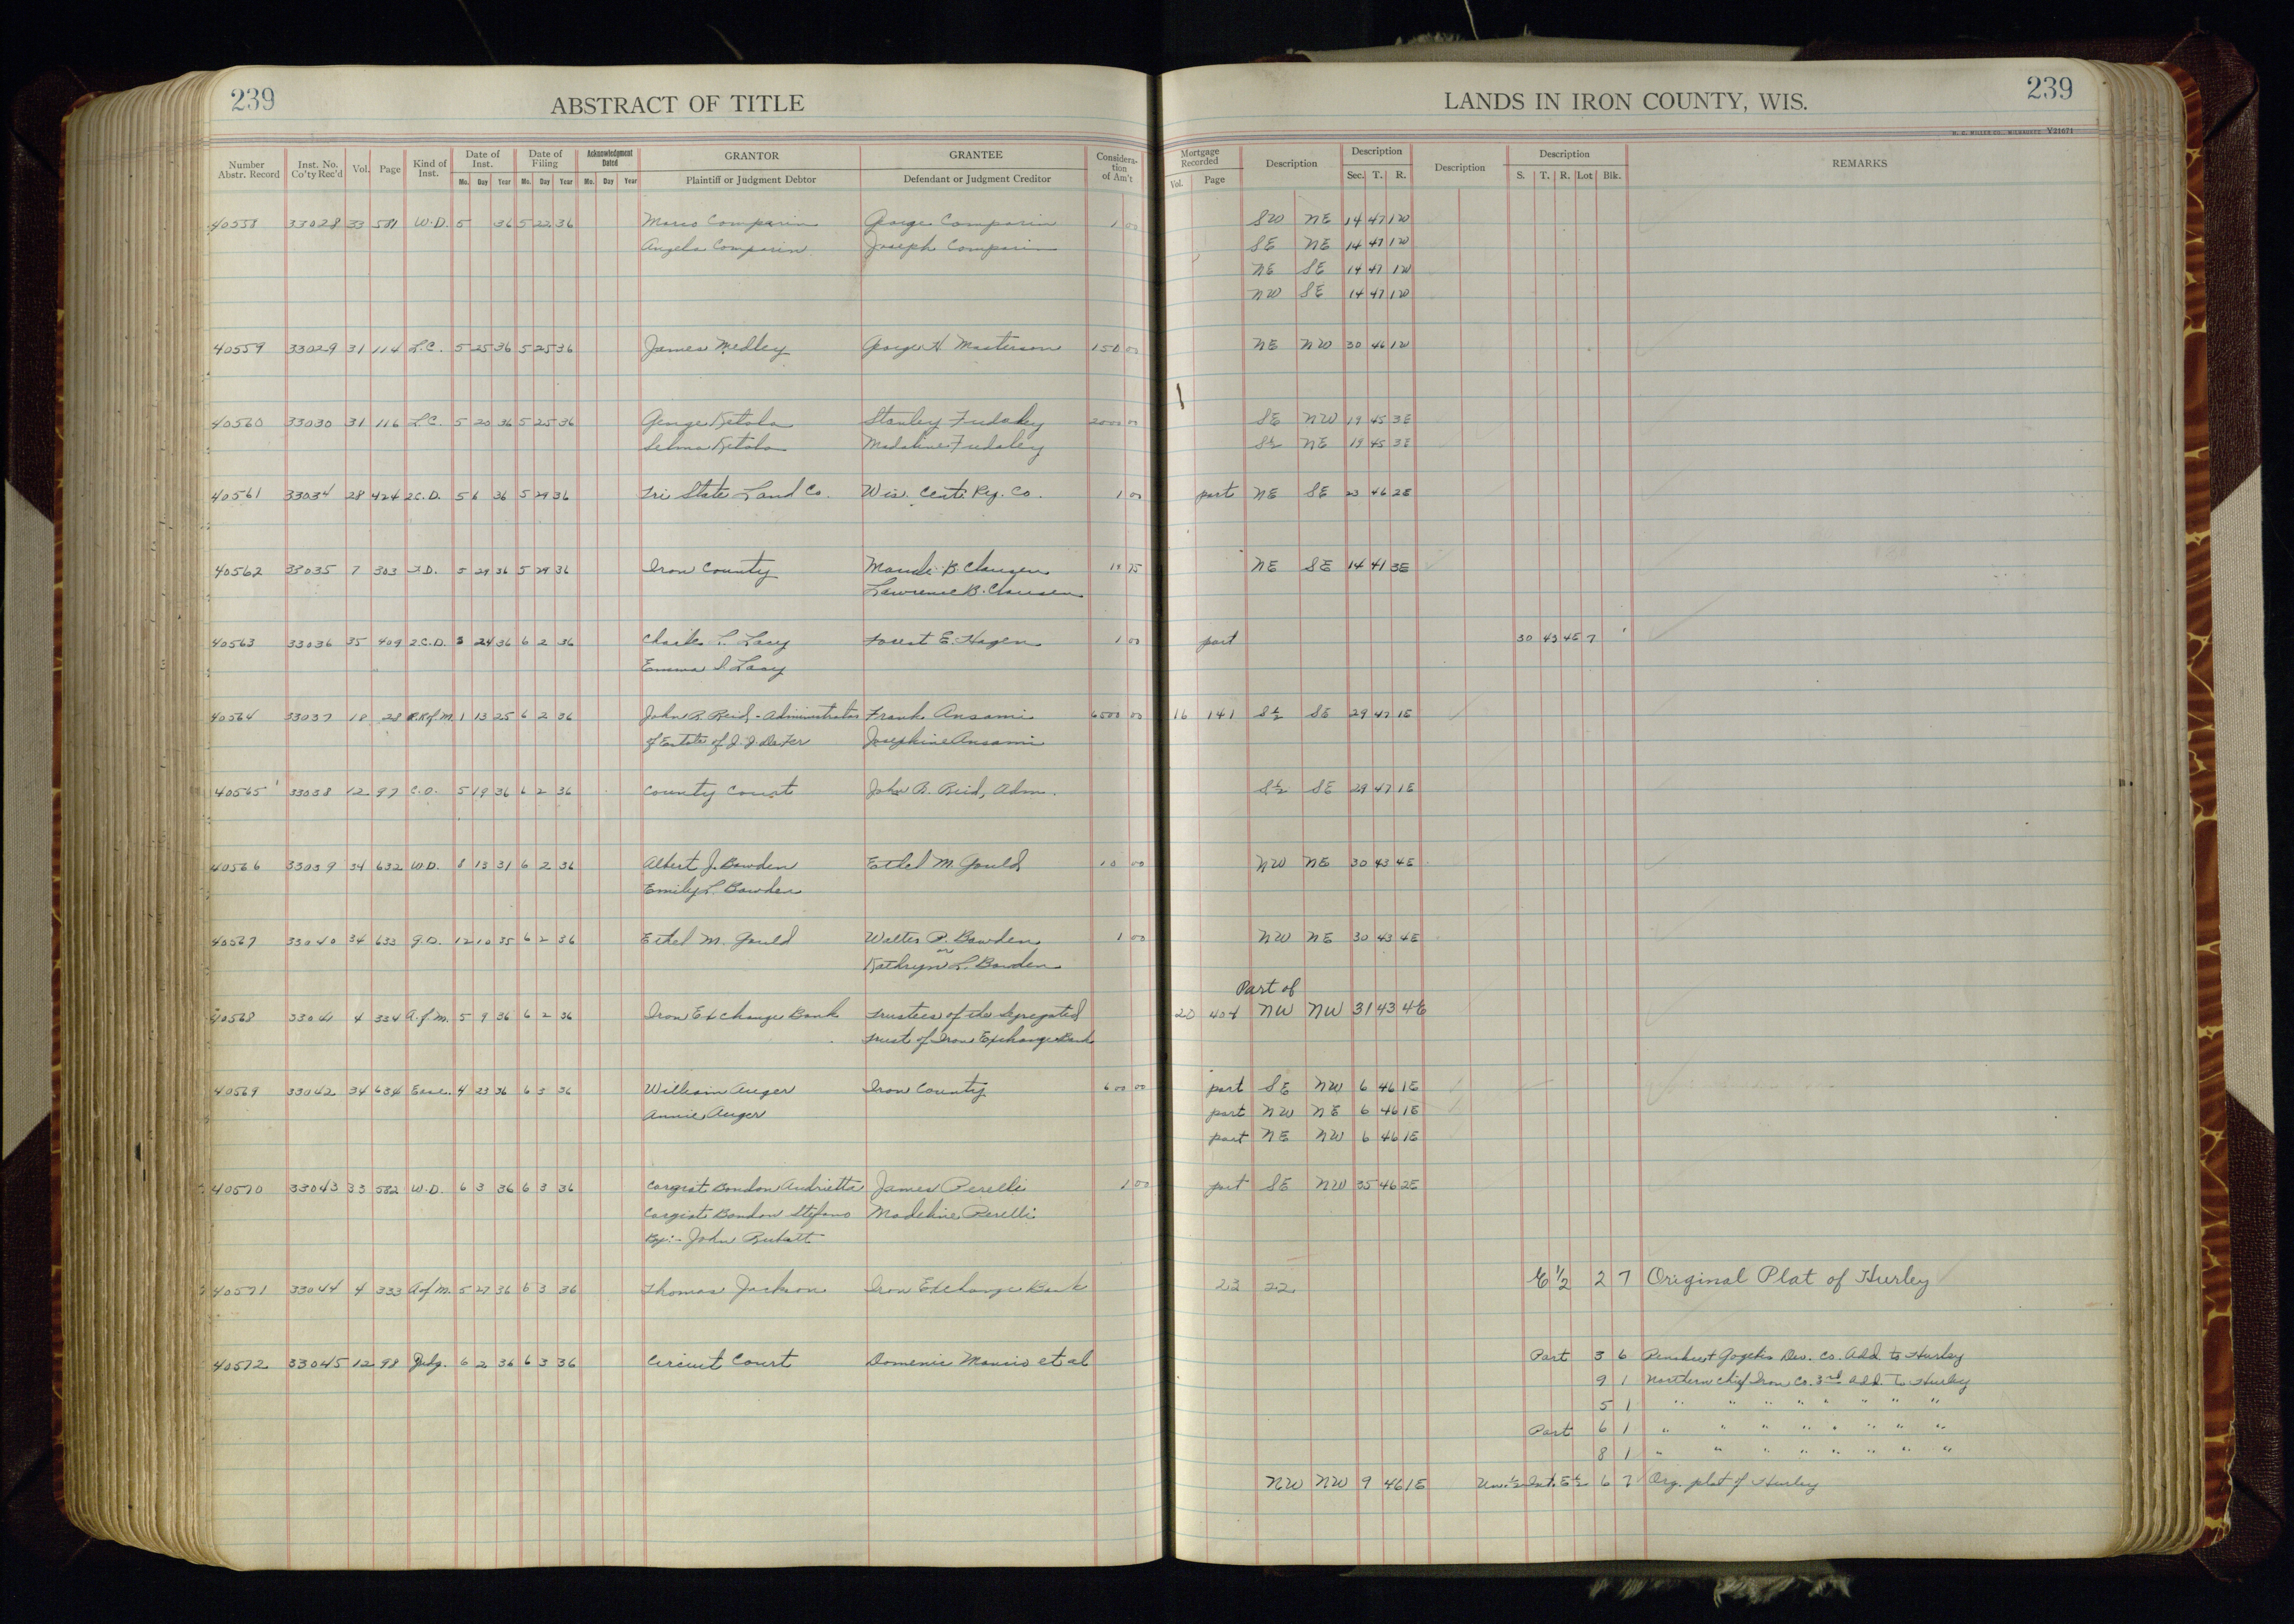 239 ABSTRACT OF TITLE LANDS IN IRON COUNTY, WIS. 239
H. C. MILLER CO., MILWAUKEE V21671
Number Abstr. Record Inst. No. Co'ty Rec'd Vol. Page Kind of Inst. Date of Inst. Mo. Day Year Date of Filing Mo. Day Year Acknowledgment Dated Mo. Day Year GRANTOR Plaintiff or Judgment Debtor GRANTEE Defendant or Judgment Creditor Consideration of Am't Mortgage Recorded Vol. Page Description Description Sec. T. R. Description Description S. T. R. Lot Blk. REMARKS
40558 33028 33 581 W.D. 5 36 5 22 36 Marco Comparin George Comparin 1 00 SW NE 14 47 1W
Angela Comparin Joseph Comparin SE NE 14 47 1W
NE SE 14 47 1W
NW SE 14 47 1W
40559 33029 31 114 L.C. 5 25 36 5 25 36 James Medley George H Masterson 150 00 NE NW 30 46 1W
40560 33030 31 116 L.C. 5 20 36 5 25 36 George Ketola Stanley 2000 00 SE NW 19 45 3E
Selma Ketola Madaline S½ NE 19 45 3E
40561 33034 28 424 2.C.D. 5 6 36 5 29 36 Tri State Land Co. Wis. Cent. Ry. Co. 1 00 part NE SE 23 46 2E
40562 33035 7 303 5 29 36 5 29 36 Iron County Maude B. Clausen 75 NE SE 14 41 3E
Lawrence B. Clausen
40563 33036 35 409 2.C.D. 3 24 36 6 2 36 Lacy E. Hagen 1 00 part 30 43 4E 7
Emma Lacy
40564 33037 18 28 R. of M. 1 13 25 6 2 36 John R. Reid - Administrator Frank Ansami 6500 00 16 141 S½ SE 29 47 1E
of Estate of J. J. Josephine Ansami
40565 33038 12 97 C.O. 5 19 36 6 2 36 County Court John R. Reid, Adm. S½ SE 29 47 1E
40566 33039 34 632 W.D. 8 13 31 6 2 36 Albert J. Bowden Ethel M. Gould 10 00 NW NE 30 43 4E
Emily L. Bowden
40567 33040 34 633 12 10 35 6 2 36 Ethel M. Gould Walter P. Bowden 1 00 NW NE 30 43 4E
or
Kathryn L. Bowden
Part of
40568 33041 4 334 A. of M. 5 9 36 6 2 36 Iron Exchange Bank Trustees of the Segregated 20 404 NW NW 31 43 4E
Trust of Iron Exchange Bank
40569 33042 34 634 Ease. 4 23 36 6 3 36 William Auger Iron County 600 00 part SE NW 6 46 1E
Annie Auger part NW NE 6 46 1E
part NE NW 6 46 1E
40570 33043 33 582 W.D. 6 3 36 6 3 36 Bondon Andrietta James Perelli 1 00 part SE NW 35 46 2E
Bondon Stefano Madeline Perelli
By:- John
40571 33044 4 333 A of M. 5 27 36 6 3 36 Thomas Jackson Iron Exchange Bank 23 22 E 1/2 2 7 Original Plat of Hurley
40572 33045 12 98 Judg. 6 2 36 6 3 36 Circuit Court Domenic et al Part 3 6 Gogebic Dev. Co. Add. to Hurley
9 1 Northern Chief Iron Co. 3rd Add. To Hurley
5 1 " " " " " " " "
Part 6 1 " " " " " " " "
8 1 " " " " " " " "
NW NW 9 46 1E Und. ½ Int. E½ 6 7 Org. plat of Hurley